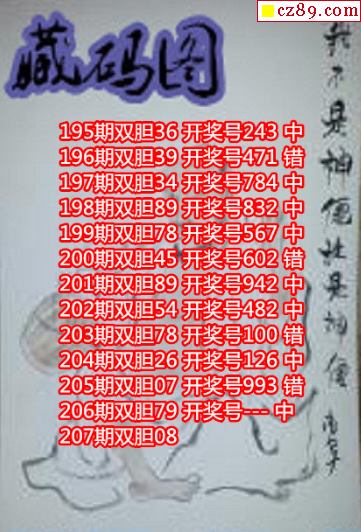 cz89.com
藏码图
195期双胆36 开奖号243 中
196期双胆39 开奖号471 错
197期双胆34 开奖号784 中
198期双胆89 开奖号832 中
199期双胆78 开奖号567 中
200期双胆45 开奖号602 错
201期双胆89 开奖号942 中
202期双胆54 开奖号482 中
203期双胆78 开奖号100 错
204期双胆26 开奖号126 中
205期双胆07 开奖号993 错
206期双胆79 开奖号--- 中
207期双胆08
我不是神便壮是神便